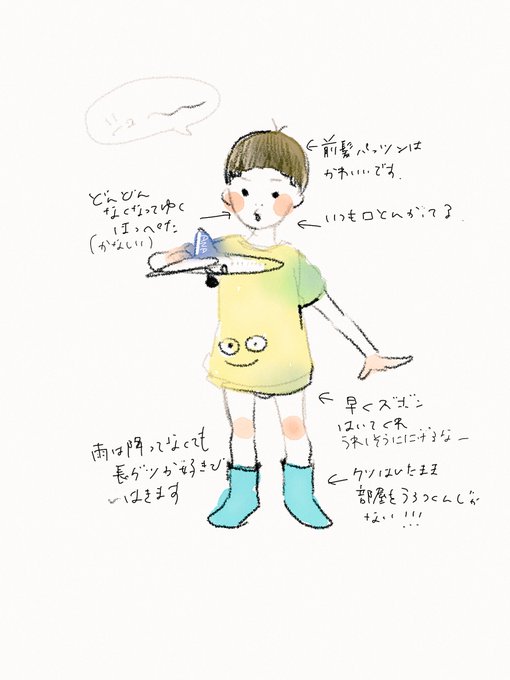 シュー
前髪パッツンは
かわいいです。
どんどん
なくなってゆく
ほっぺた
(かなしい)
いつも口とんがってる
早くズボン
はいてくれ
うれしそうににげるなー
雨は降ってなくても
長グツが好きで
はきます
クツはいたまま
部屋をうろつくんじゃ
ない!!!